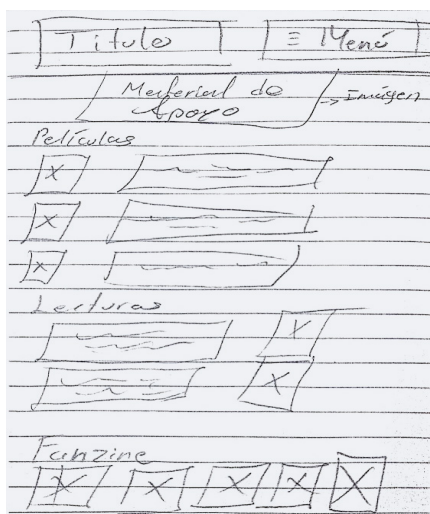 Titulo
≡ Menú
Material de
Apoyo
→ Imágen
Películas
Lecturas
Fanzine